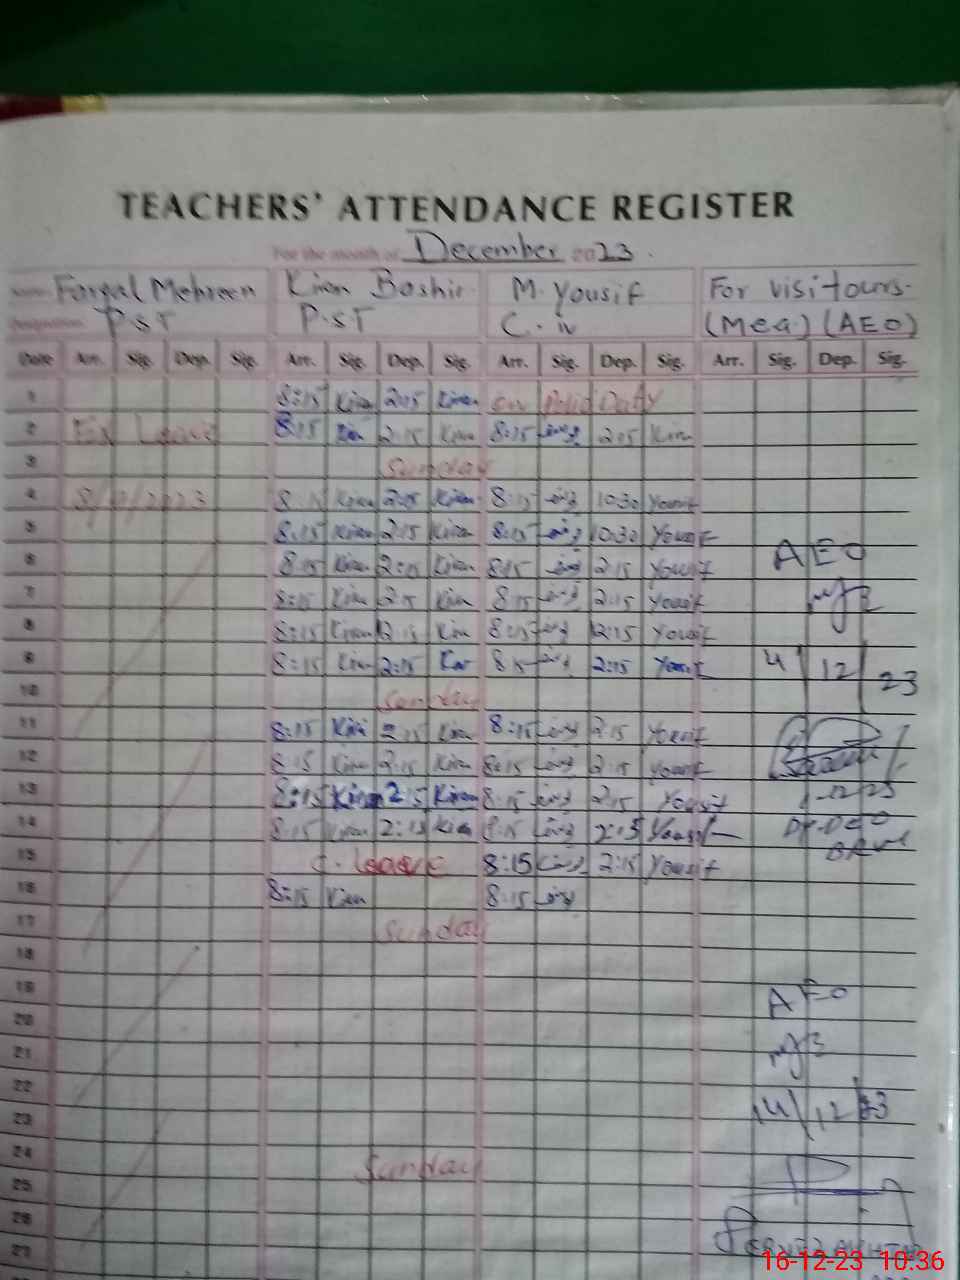 TEACHERS' ATTENDANCE REGISTER
For the month of December 2023.
Name Kiran Bashir M. Yousif For visitours.
Designation P.S.T P.ST C. iv (Mea.) (AEO)
Date Arr. Sig. Dep. Sig. Arr. Sig. Dep. Sig. Arr. Sig. Dep. Sig. Arr. Sig. Dep. Sig.
1 8:15 Kiran 2:15 Kiran on Polio Duty
2 Ex Leave 8:15 Kiran 2:15 Kiran 8:15 2:15 Kiran
3 Sunday
4 8:15 Kiran 2:15 Kiran 8:15 10:30 Yousif
5 8:15 Kiran 2:15 Kiran 8:15 10:30 Yousif
AEO
6 8:15 Kiran 2:15 Kiran 8:15 2:15 Yousif
7 8:15 Kiran 2:15 Kiran 8:15 2:15 Yousif
8 8:15 Kiran 2:15 Kiran 8:15 2:15 Yousif
9 8:15 Kiran 2:15 Kiran 8:15 2:15 Yousif 4/12/23
10 Sunday
11 8:15 Kiran 2:15 Kiran 8:15 2:15 Yousif
12 8:15 Kiran 2:15 Kiran 8:15 2:15 Yousif
13 8:15 Kiran 2:15 Kiran 8:15 2:15 Yousif
14 8:15 Kiran 2:15 Kiran 8:15 2:15 Yousif
15 C. leave 8:15 2:15 Yousif
16 8:15 Kiran 8:15
17 Sunday
18
19 AEO
20
21
22
23 14/12/23
24 Sunday
25
26
27
16-12-23 10:36